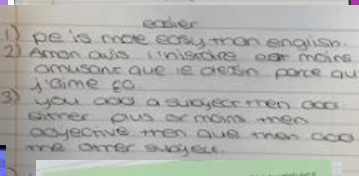 easier
1) pe is more easy than english.
2) Amon avis l'histoire est moins
amusant que le dessin parce qu
j'aime ça
3) you add a subject then add
either plus or moins then
adjective then que then add
the other subject.